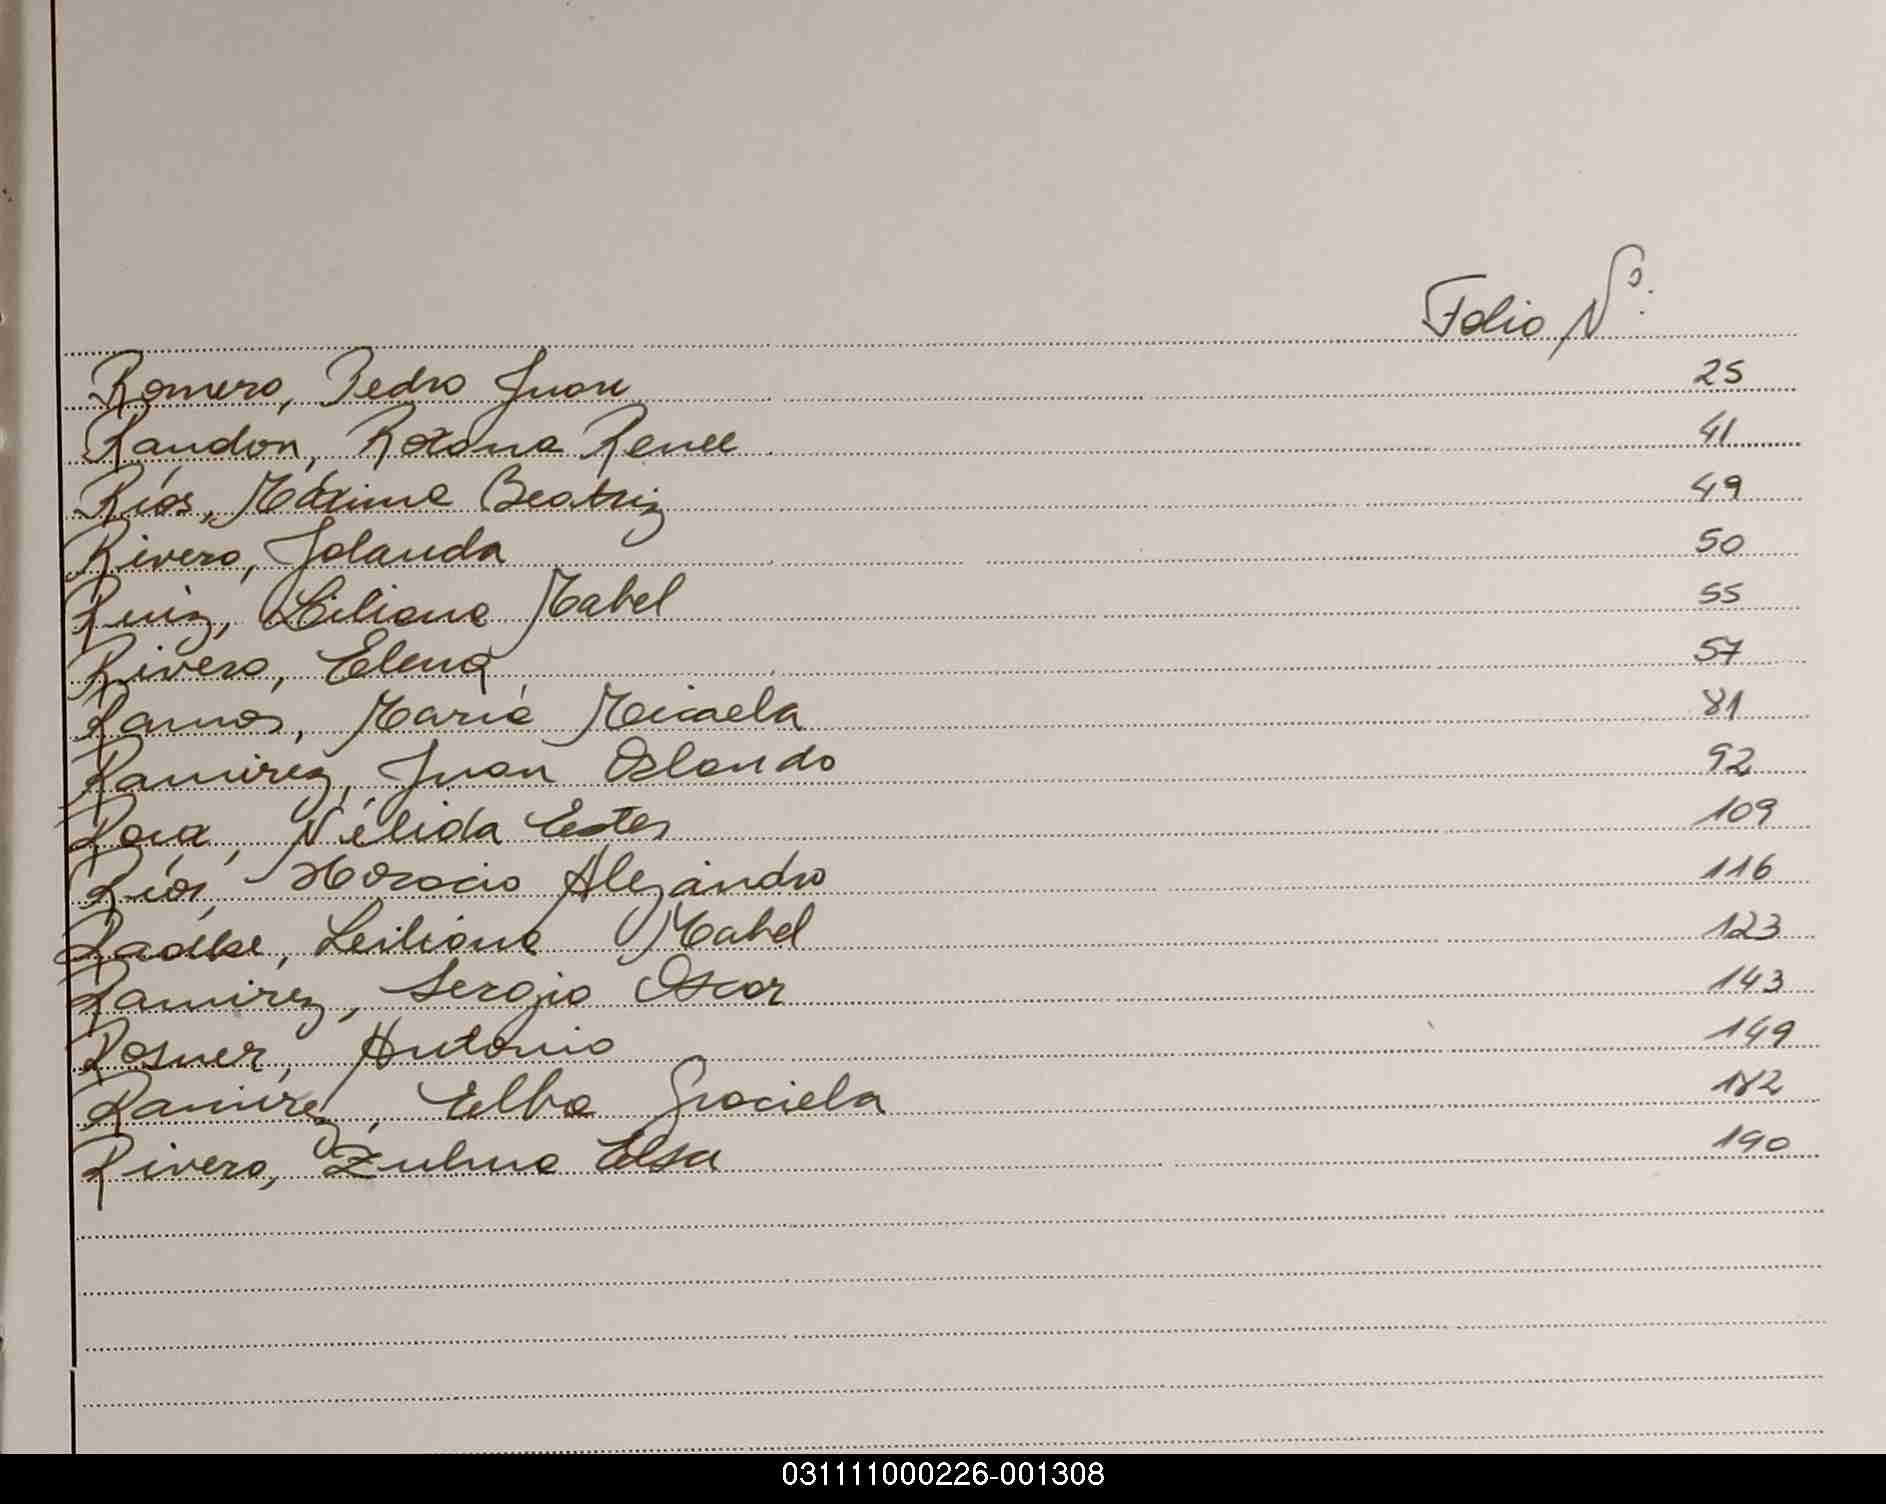 Folio Nº:
Romero, Pedro Juan 25
Randon, Roxana Renee 41
Ríos, Máxima Beatriz 49
Rivero, Jolanda 50
Ruiz, Liliana Mabel 55
Rivero, Elena 57
Ramos, María Micaela 81
Ramirez, Juan Orlando 92
Nélida Ester 109
Ríos, Horacio Alejandro 116
Radke, Leiliana Mabel 123
Ramirez, Sergio Oscar 143
Rosner, Antonio 149
Ramirez, Elba Graciela 182
Rivero, Zulma Elsa 190
031111000226-001308